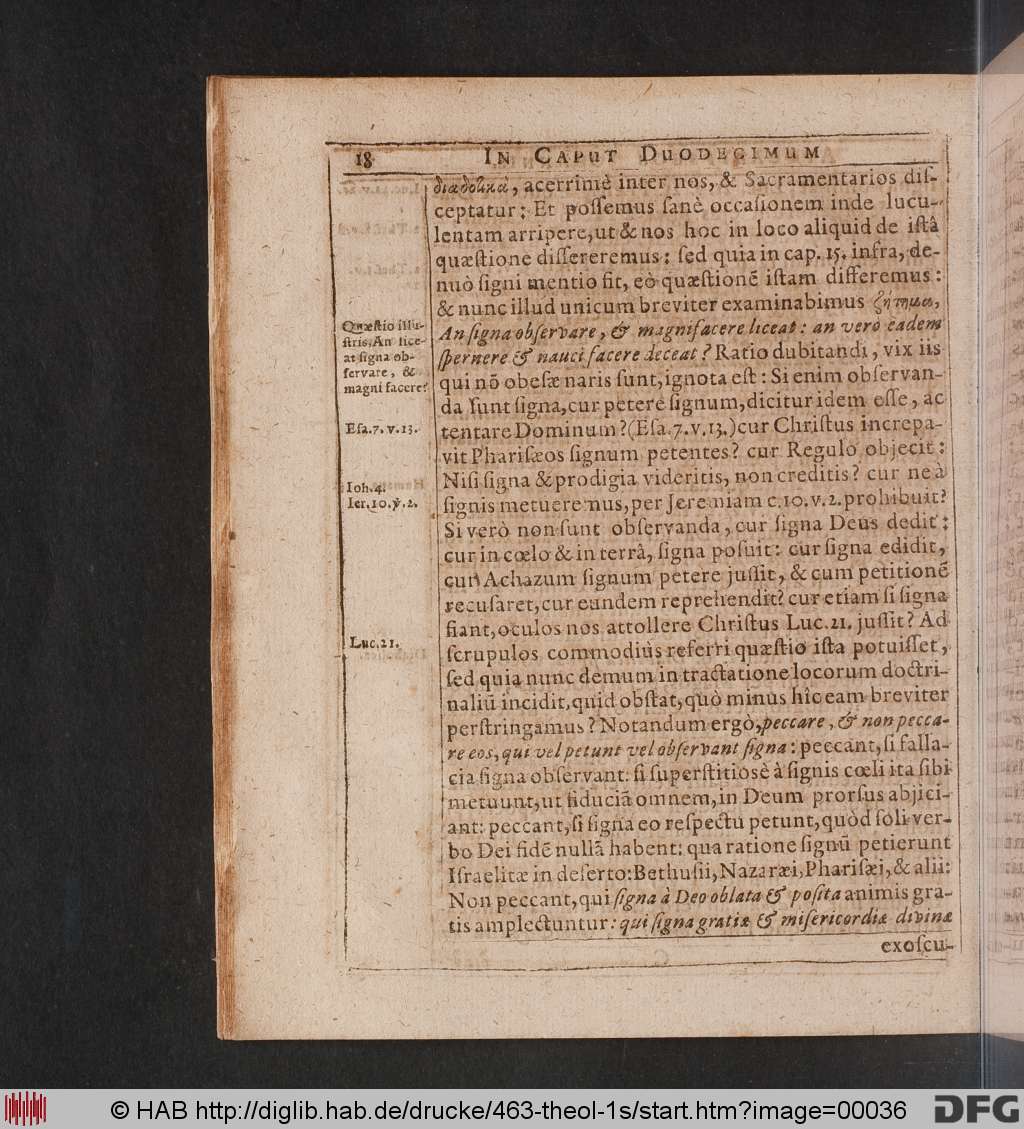 18 IN CAPUT DUODECIMUM
acerrimè inter nos, & Sacramentarios diſ-
ceptatur: Et poſſemus ſanè occaſionem inde lucu-
lentam arripere, ut & nos hoc in loco aliquid de iſtâ
quæſtione diſſereremus: ſed quia in cap. 15. infra, de-
nuò ſigni mentio fit, eò quæſtionē iſtam differemus:
& nunc illud unicum breviter examinabimus ζήτημα,
An ſigna obſervare, & magnifacere liceat: an verò eadem
ſpernere & nauci facere deceat? Ratio dubitandi, vix iis
qui nō obeſæ naris ſunt, ignota eſt: Si enim obſervan-
da ſunt ſigna, cur petere ſignum, dicitur idem eſſe, ac
tentare Dominum? (Eſa. 7. v. 13.) cur Chriſtus increpa-
vit Phariſæos ſignum petentes? cur Regulo objecit:
Niſi ſigna & prodigia videritis, non creditis? cur ne à
ſignis metueremus, per Jeremiam c. 10. v. 2. prohibuit?
Si verò non ſunt obſervanda, cur ſigna Deus dedit:
cur in cœlo & in terrâ, ſigna poſuit: cur ſigna edidit,
cur Achazum ſignum petere juſſit, & cum petitionē
recuſaret, cur eundem reprehendit? cur etiam ſi ſigna
fiant, oculos nos attollere Chriſtus Luc. 21. juſſit? Ad
ſcrupulos commodiùs referri quæſtio iſta potuiſſet,
ſed quia nunc demum in tractatione locorum doctri-
naliū incidit, quid obſtat, quò minus hîc eam breviter
perſtringamus? Notandum ergò, peccare, & non pecca-
re eos, qui vel petunt vel obſervant ſigna: peccant, ſi falla-
cia ſigna obſervant: ſi ſuperſtitiosè à ſignis cœli ita ſibi
metuunt, ut fiduciā omnem, in Deum prorſus abjici-
ant: peccant, ſi ſigna eo reſpectu petunt, quòd ſoli ver-
bo Dei fidē nullā habent: qua ratione ſignū petierunt
Iſraelitæ in deſerto: Bethuſii, Nazaræi, Phariſæi, & alii:
Non peccant, qui ſigna à Deo oblata & poſita animis gra-
tis amplectuntur: qui ſigna gratiæ & miſericordiæ divinæ
exoſcu-
Quæſtio illu-
ſtris, An lice-
at ſigna ob-
ſervare, &
magni facere?
Eſa. 7. v. 13.
Ioh. 4.
Ier. 10. ℣. 2.
Luc. 21.
© HAB http://diglib.hab.de/drucke/463-theol-1s/start.htm?image=00036
DFG